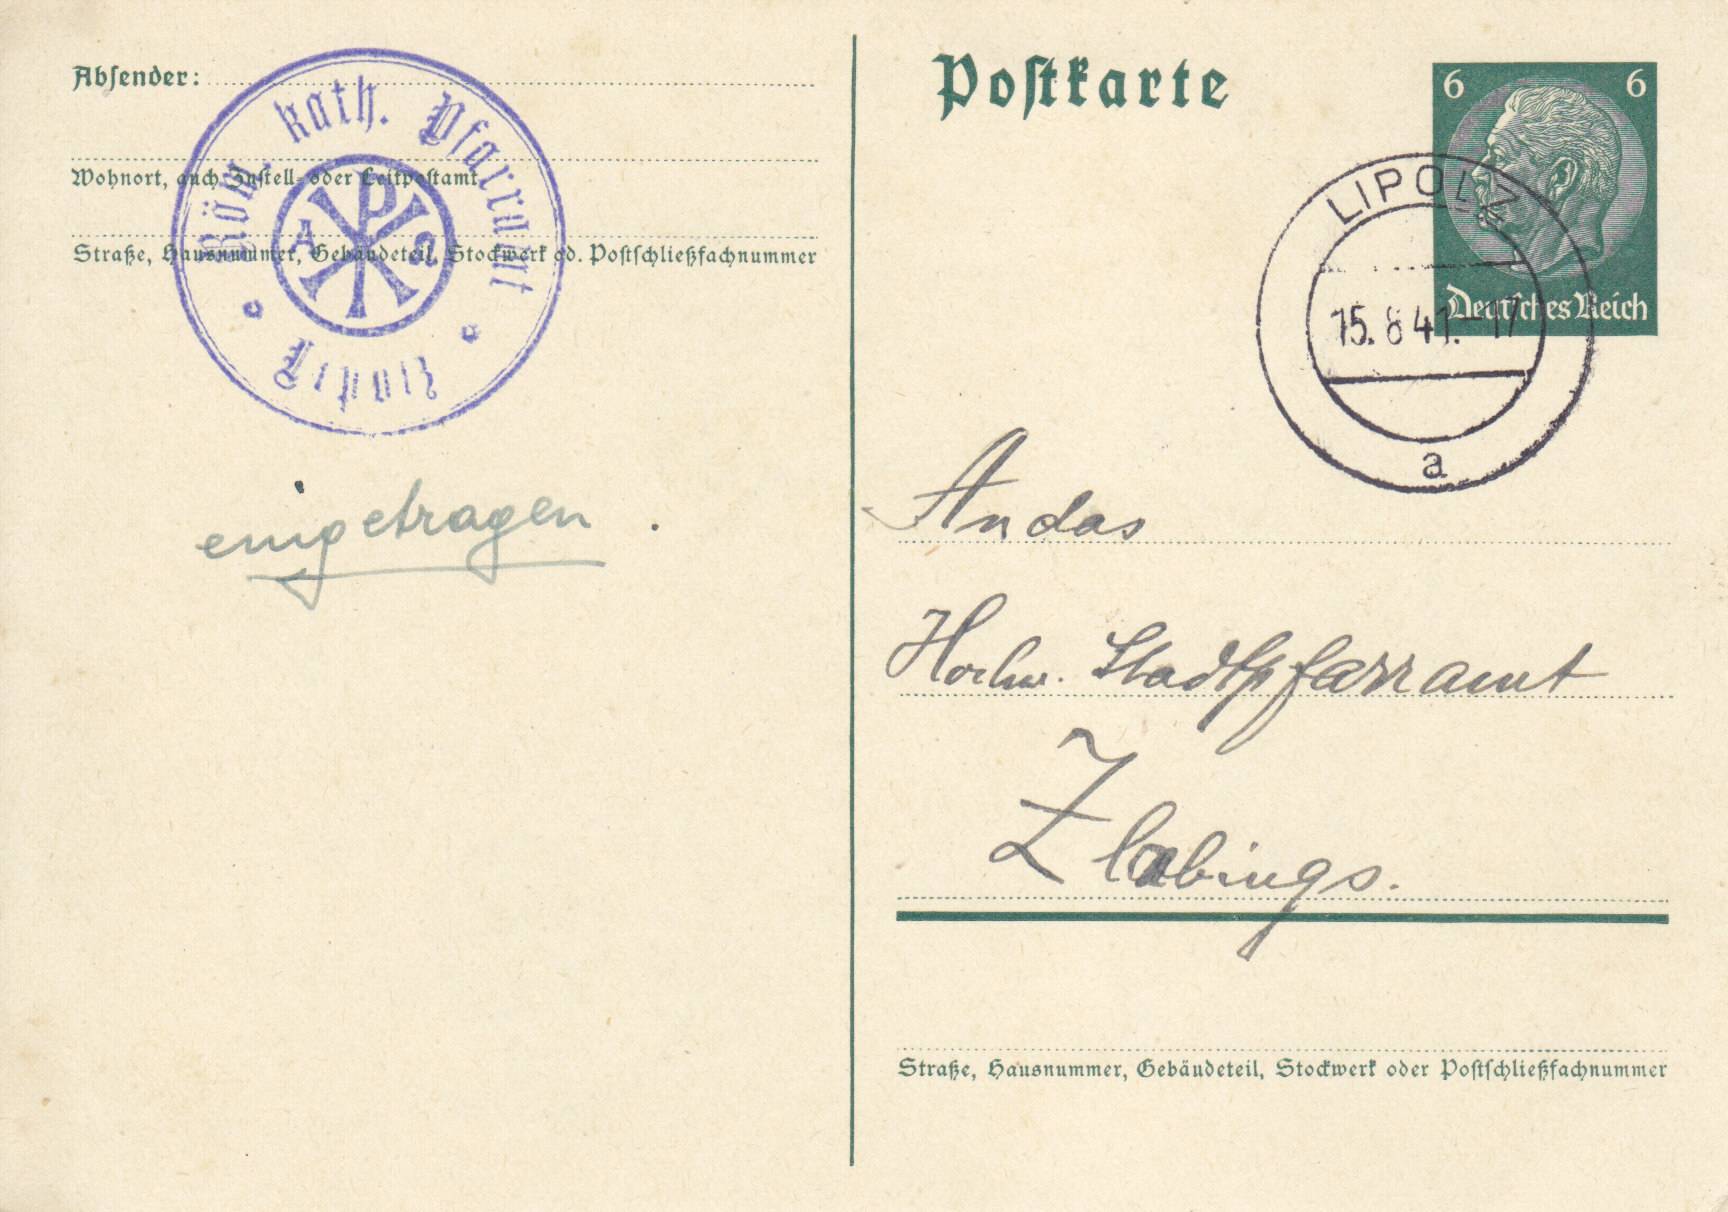 Absender:
Wohnort, auch Zustell- oder Leitpostamt
Straße, Hausnummer, Gebäudeteil, Stockwerk od. Postschließfachnummer
Röm. kath. Pfarramt
Lipolz
A Ω
eingetragen
Postkarte
6 6
Deutsches Reich
LIPOLZ
15.8.41.-17
a
An das
Hochw. Stadtpfarramt
Zlabings.
Straße, Hausnummer, Gebäudeteil, Stockwerk oder Postschließfachnummer